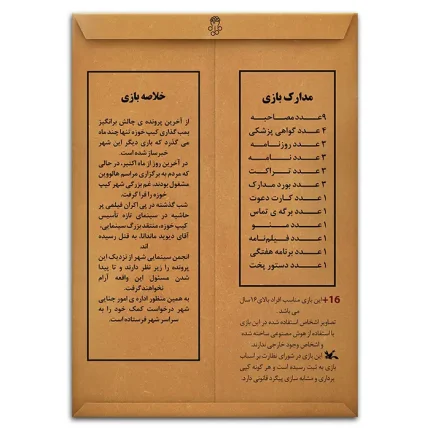 مدارک بازی
۹ عدد مصاحبه
۴ عدد گواهی پزشکی
۳ عدد روزنامه
۳ عدد نامه
۳ عدد تراکت
۳ عدد بورد مدارک
۱ عدد کارت دعوت
۱ عدد برگه ی تماس
۱ عدد منو
۱ عدد فیلم‌نامه
۱ عدد برنامه هفتگی
۱ عدد دستور پخت
+16 این بازی مناسب افراد بالای ۱۶ سال
می باشد.
تصاویر اشخاص استفاده شده در این بازی
با استفاده از هوش مصنوعی ساخته شده
و اشخاص وجود خارجی ندارند.
این بازی در شورای نظارت بر اسباب
بازی به ثبت رسیده است و هر گونه کپی
برداری و مشابه سازی پیگرد قانونی دارد.
خلاصه بازی
از آخرین پرونده ی چالش برانگیز
بمب گذاری کیپ خوزه تنها چند ماه
می گذرد که بازی دیگر این شهر
خبرساز شده است.
در آخرین روز از ماه اکتبر، در حالی
که مردم به برگزاری مراسم هالووین
مشغول بودند، غم بزرگی شهر کیپ
خوزه را فرا گرفت.
شب گذشته در پی اکران فیلمی پر
حاشیه در سینمای تازه تأسیس
کیپ خوزه، منتقد بزرگ سینمایی،
آقای دیوید ماندانا، به قتل رسیده
اند.
انجمن سینمایی شهر از نزدیک این
پرونده را زیر نظر دارند و تا پیدا
شدن مسئول این واقعه آرام
نخواهند گرفت.
به همین منظور اداره ی امور جنایی
شهر درخواست کمک خود را به
سراسر شهر فرستاده است.